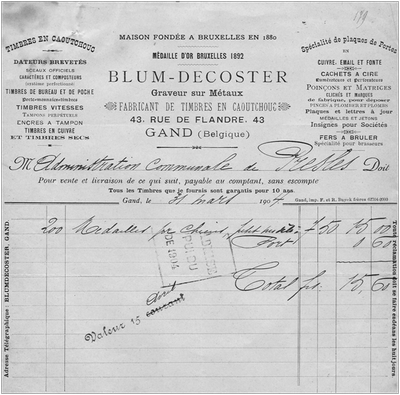 139
MAISON FONDÉE A BRUXELLES EN 1880
TIMBRES EN CAOUTCHOUC
DATEURS BREVETÉS
SCEAUX OFFICIELS
CARACTÈRES ET COMPOSTEURS
TIMBRES DE BUREAU ET DE POCHE
TIMBRES VITESSES
TAMPONS PERPÉTUELS
ENCRES A TAMPON
TIMBRES EN CUIVRE
ET TIMBRES SECS
MÉDAILLE D'OR BRUXELLES 1892
BLUM-DECOSTER
Graveur sur Métaux
FABRICANT DE TIMBRES EN CAOUTCHOUC
43, RUE DE FLANDRE, 43
GAND (Belgique)
Spécialité de plaques de Portes
EN
CUIVRE, EMAIL ET FONTE
CACHETS A CIRE
Numéroteurs et Perforateurs
POINÇONS ET MATRICES
CLICHÉS ET MARQUES
de fabrique, pour déposer
PINCES A PLOMBER ET PLOMBS
LETTRES ET PLAQUES A JOUR
MÉDAILLES ET JETONS
Insignes pour Sociétés
FERS A BRULER
Spécialité pour brasseurs
M Administration Communale de Presles Doit
Pour vente et livraison de ce qui suit, payable au comptant, sans escompte
Tous les Timbres que je fournis sont garantis pour 10 ans.
Gand, le 31 mars 1904
Adresse Télégraphique : BLUMDECOSTER, GAND
200 Médailles pr Chiens, petit modèle 7.50 15,00
Port 0 60
Total fr. 15,60
Valeur 15 courant
Avril
Toute réclamation doit se faire endéans les huit jours